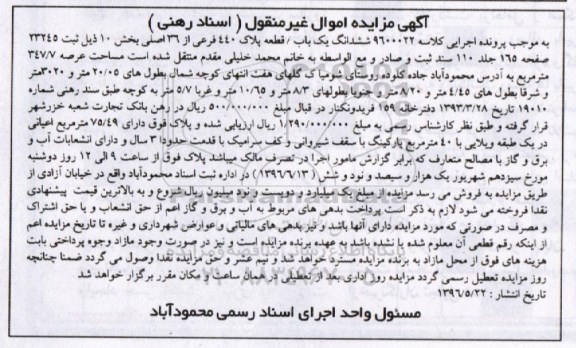 آگهی مزایده اموال غیرمنقول ( اسناد رهنی )
به موجب پرونده اجرایی کلاسه ۹۶۰۰۰۲۲ ششدانگ یک باب / قطعه پلاک ۴۴۰ فرعی از ۳۶ اصلی بخش ۱۰ ذیل ثبت ۲۳۲۴۵
صفحه ۱۶۵ جلد ۱۱۰ سند ثبت و صادر و مع الواسطه به خانم محمد خلیلی مقدم منتقل شده است مساحت عرصه ۳۴۷/۷
مترمربع به آدرس محمودآباد جاده کلوده روستای مرمیاب گلهای هفت انتهای کوچه شمال بطول های ۲۰/۰۵ متر و ۳۰۲۰متر
و شرقا بطول های ۴/۴۵ متر و ۸/۲۰ متر و جنوبا بطولهای ۸/۳ متر و ۱۰/۶۵ متر و غربا ۵/۷ متر به کوچه طبق سند رهنی شماره
۱۹۰۱۰ تاریخ ۱۳۹۳/۳/۲۸ دفترخانه ۱۵۹ فریدونکنار در قبال مبلغ ۵۰۰/۰۰۰/۰۰۰ ریال در رهن بانک تجارت شعبه خزرشهر
قرار گرفته و طبق نظر کارشناس رسمی به مبلغ ۱/۲۹۰/۰۰۰/۰۰۰ ریال ارزیابی شده و پلاک فوق دارای ۷۵/۴۹ مترمربع اعیانی
در یک طبقه ویلایی با ۴۰ مترمربع پارکینگ با سقف شیروانی و کف سرامیک با قدمت حدودا ۳ سال و دارای انشعابات آب و
برق و گاز با مصالح متعارف که برابر گزارش مامور اجرا در تصرف مالک میباشد پلاک فوق از ساعت ۹ الی ۱۲ روز دوشنبه
مورخ سیزدهم شهریور یک هزار و سیصد و نود و شش ( ۱۳۹۶/۶/۱۳ ) در اداره ثبت اسناد محمودآباد واقع در خیابان آزادی از
طریق مزایده به فروش می رسد مزایده از مبلغ یک میلیارد و دویست و نود میلیون ریال شروع و به بالاترین قیمت پیشنهادی
نقدا فروخته می شود لازم به ذکر است پرداخت بدهی های مربوط به آب و برق و گاز اعم از حق انشعاب و یا حق اشتراک
و مصرف در صورتی که مورد مزایده دارای آنها باشد و نیز بدهی های مالیاتی و عوارض شهرداری و غیره تا تاریخ مزایده اعم
از اینکه رقم قطعی آن معلوم شده یا نشده باشد به عهده برنده مزایده است و نیز در صورت وجود مازاد وجوه پرداختی بابت
هزینه های فوق از محل مازاد به برنده مزایده مسترد خواهد شد و نیم عشر و حق مزایده نقدا وصول می گردد ضمنا چنانچه
روز مزایده تعطیل رسمی گردد مزایده روز اداری بعد از تعطیلی در همان ساعت و مکان مقرر برگزار خواهد شد
تاریخ انتشار : ۱۳۹۶/۵/۲۲
مسئول واحد اجرای اسناد رسمی محمودآباد